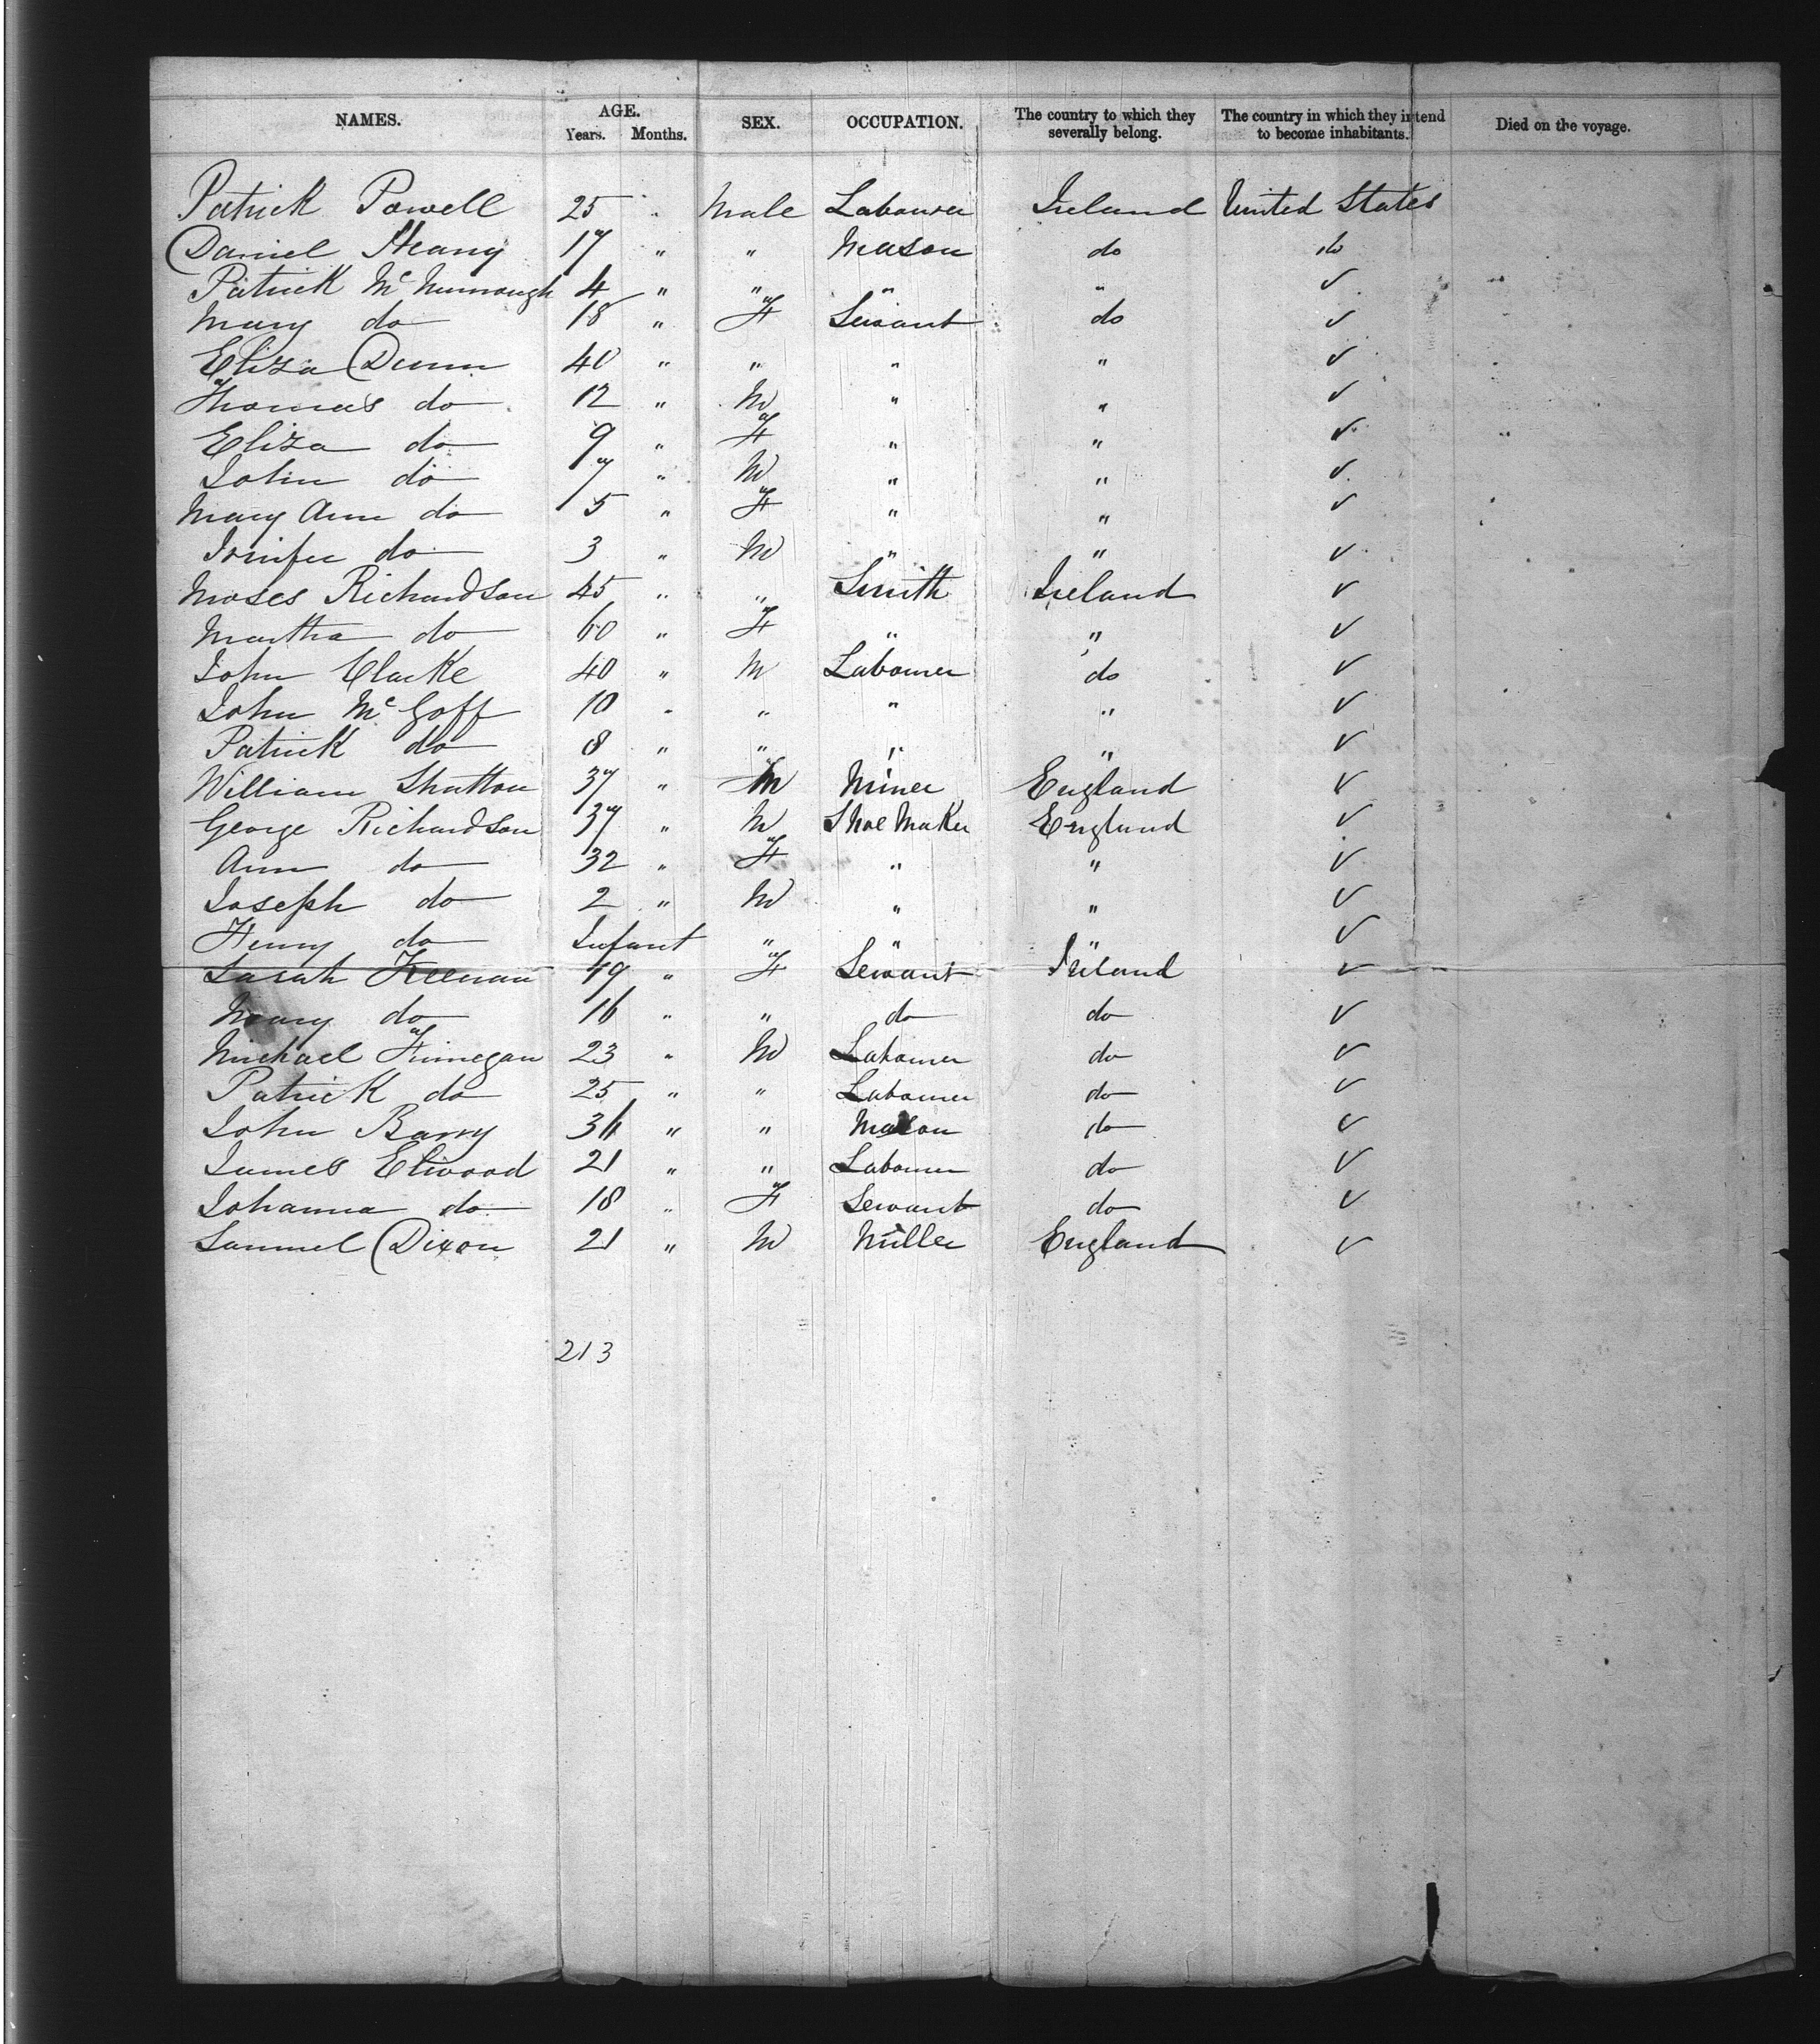 NAMES. AGE. Years. Months. SEX. OCCUPATION. The country to which they severally belong. The country in which they intend to become inhabitants. Died on the voyage.
Patrick Powell 25 " Male Labourer Ireland United States
Daniel Heany 17 " " Mason do do
Patrick McMurrough 4 " " " " ✓
Mary do 18 " F Servant do ✓
Eliza Dunn 40 " " " " ✓
Thomas do 12 " M " " ✓
Eliza do 9 " F " " ✓
John do 7 " M " " ✓
Mary Ann do 5 " F " " ✓
do 3 " M " " ✓
Moses Richardson 45 " " Smith Ireland ✓
Martha do 60 " F " " ✓
John Clarke 40 " M Labourer do ✓
John McGoff 10 " " " " ✓
Patrick do 8 " " " " ✓
William Shutton 37 " M Miner England ✓
George Richardson 37 " M Shoe Maker England ✓
Ann do 32 " F " " ✓
Joseph do 2 " M " " ✓
Henry do Infant " " " ✓
Sarah Keenan 19 " F Servant Ireland ✓
Mary do 16 " " do do ✓
Michael Finnegan 23 " M Labourer do ✓
Patrick do 25 " " Labourer do ✓
John Barry 36 " " Mason do ✓
James Elwood 21 " " Labourer do ✓
Johanna do 18 " F Servant do ✓
Samuel Dixon 21 " M Miller England ✓
213